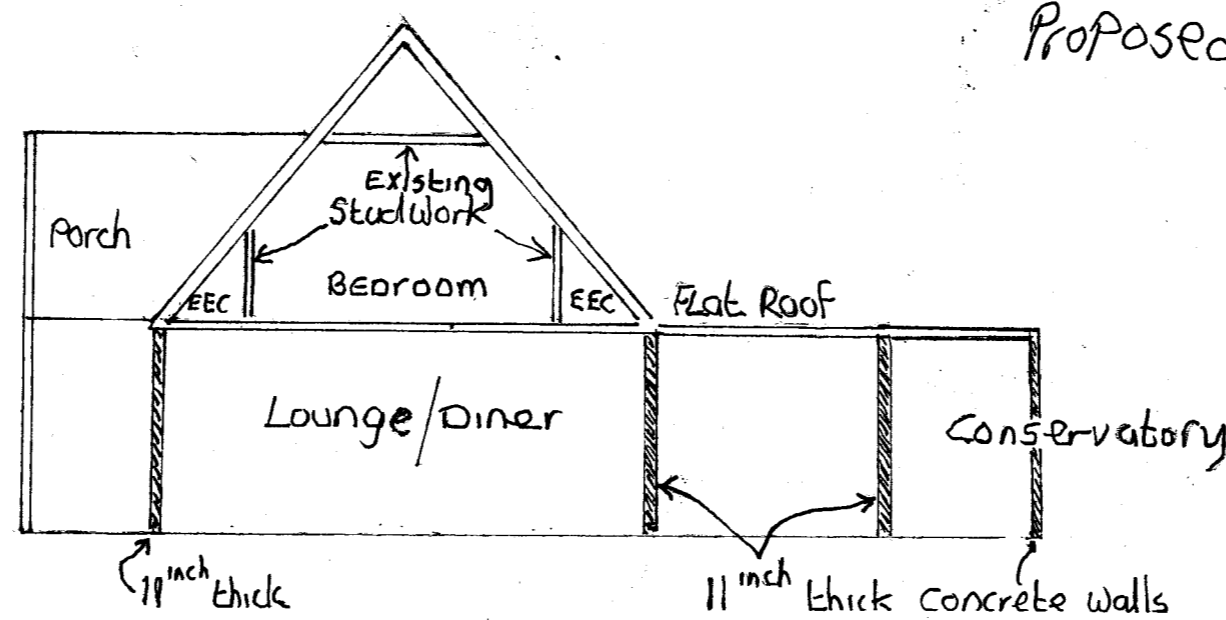 Proposed
Existing
Studwork
Porch
EEC
BEDROOM
EEC
FLat Roof
Lounge/Diner
Conservatory
11 inch thick
11 inch thick concrete walls